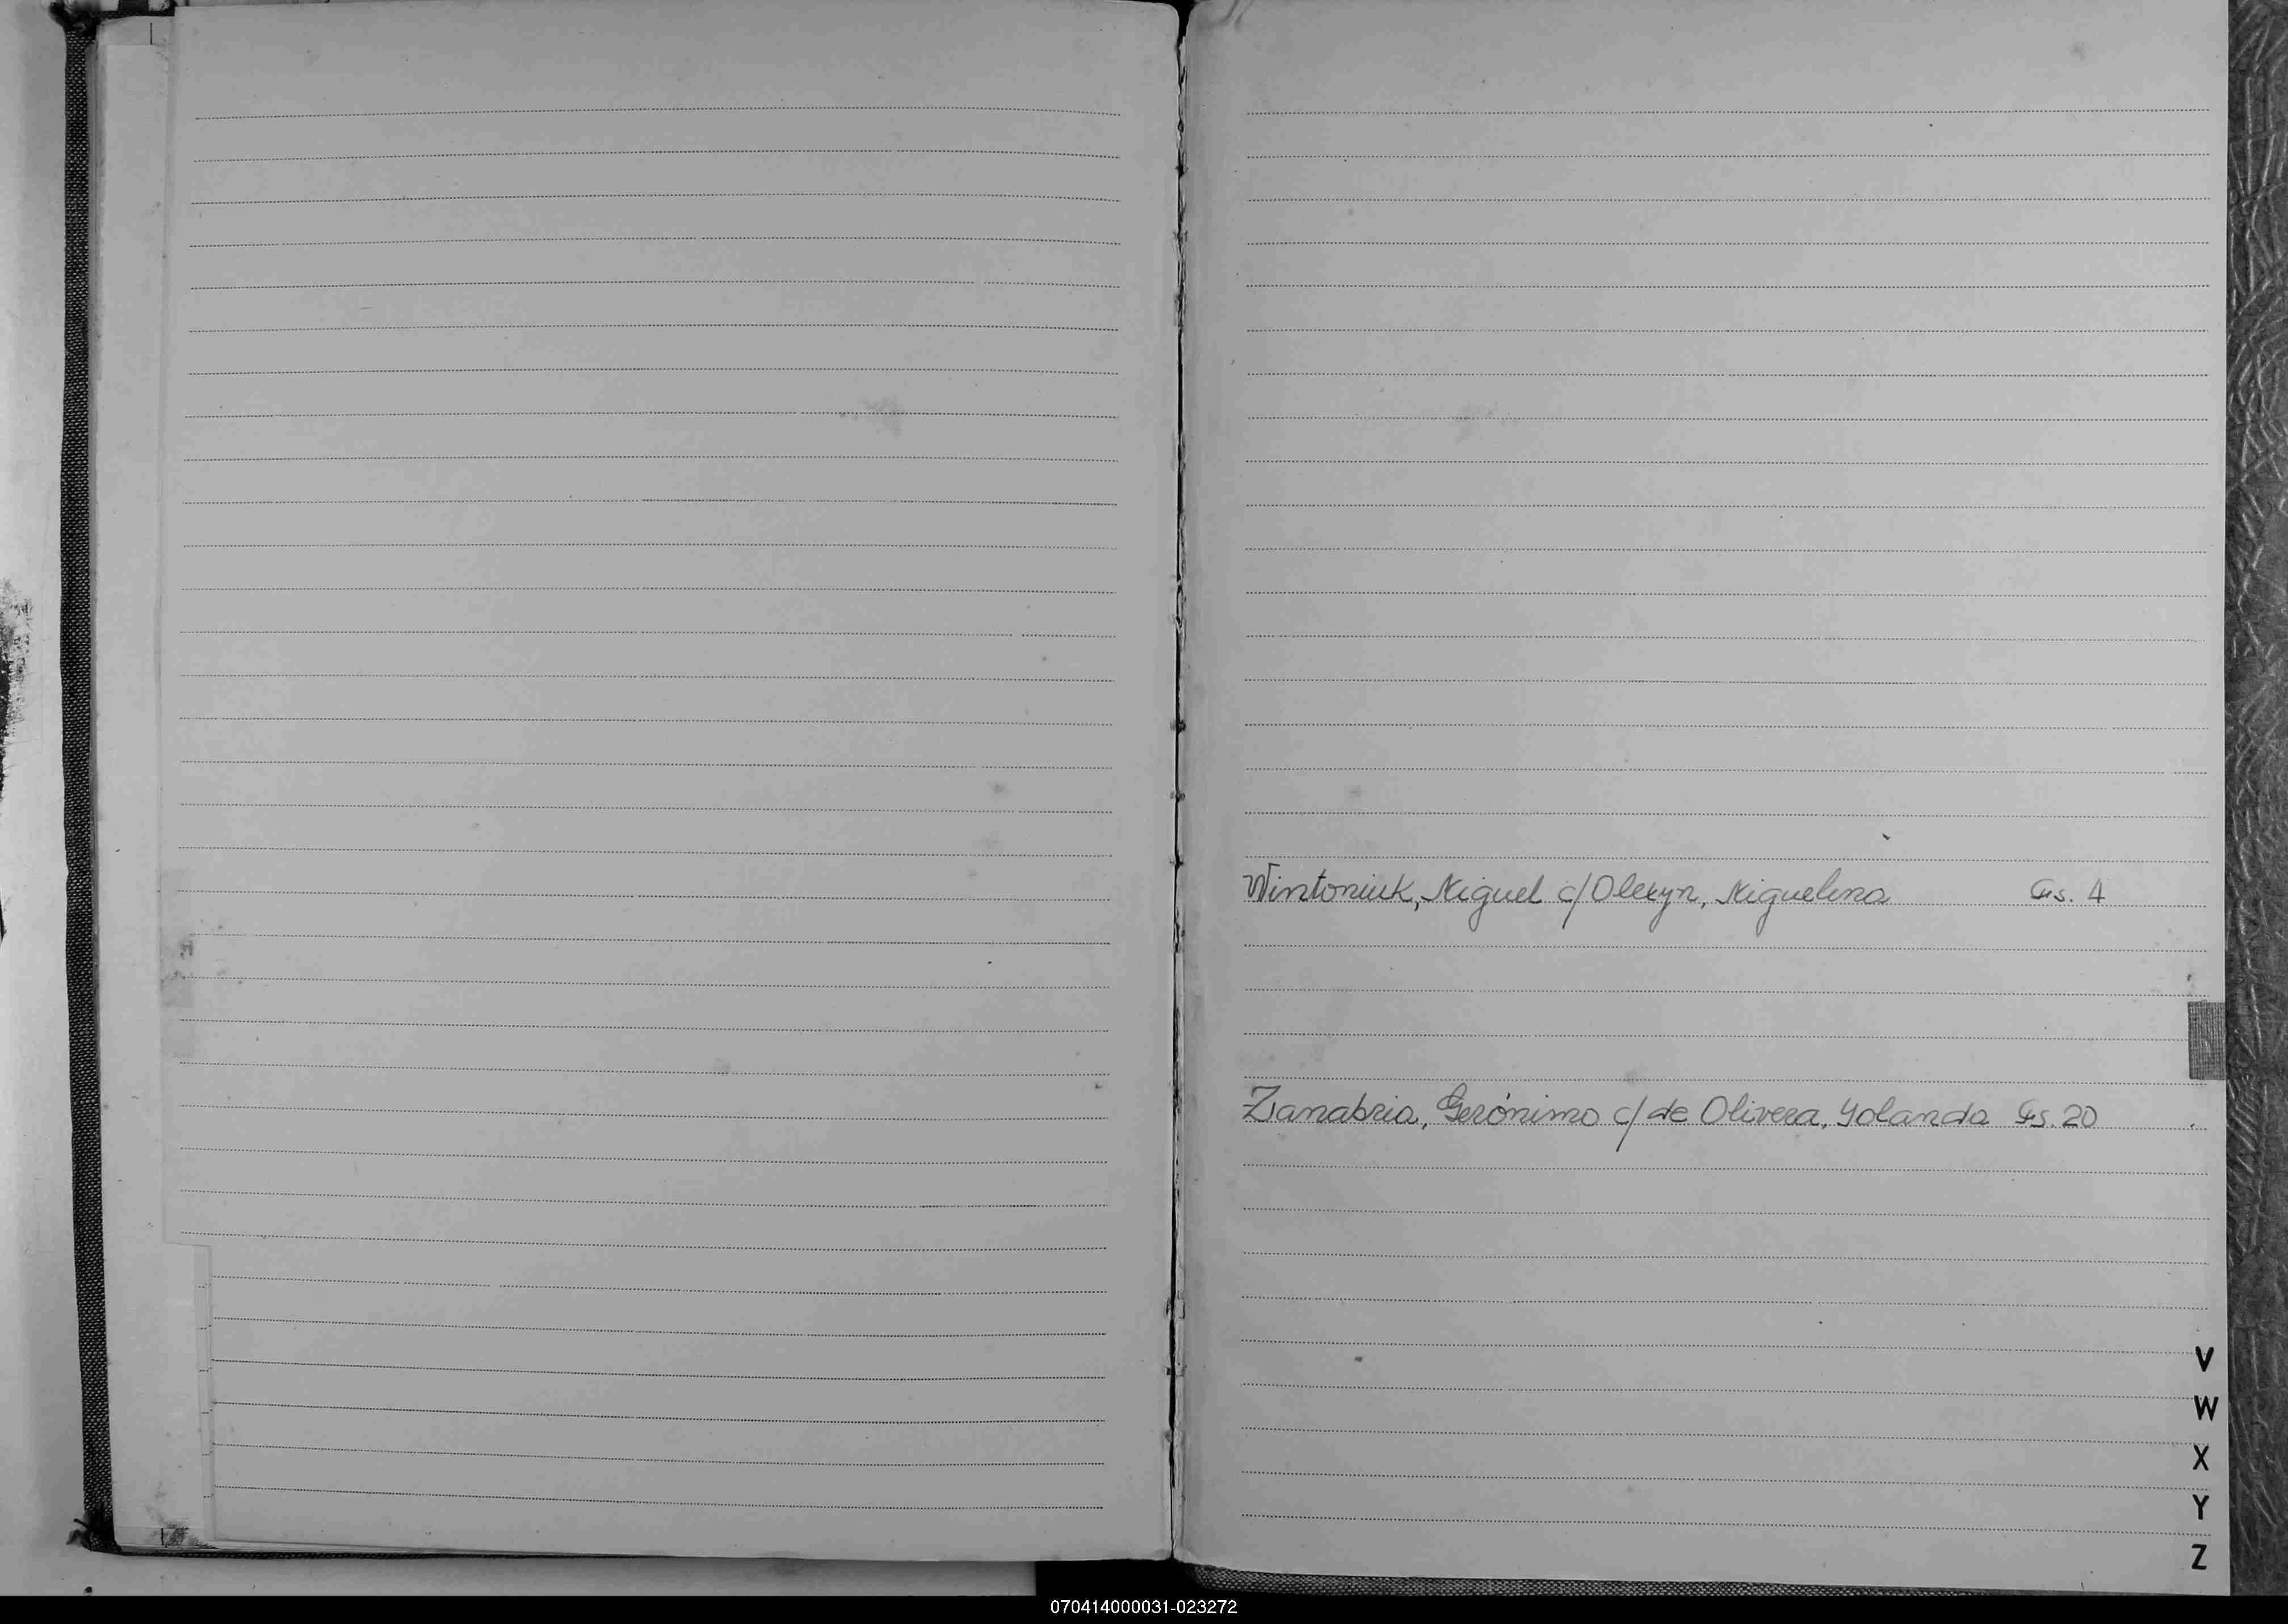 Wintoniuk, Miguel c/ Olekyn, Miguelina Fs. 4
Zanabria, Gerónimo c/ de Olivera, Yolanda Fs. 20
V
W
X
Y
Z
070414000031-023272